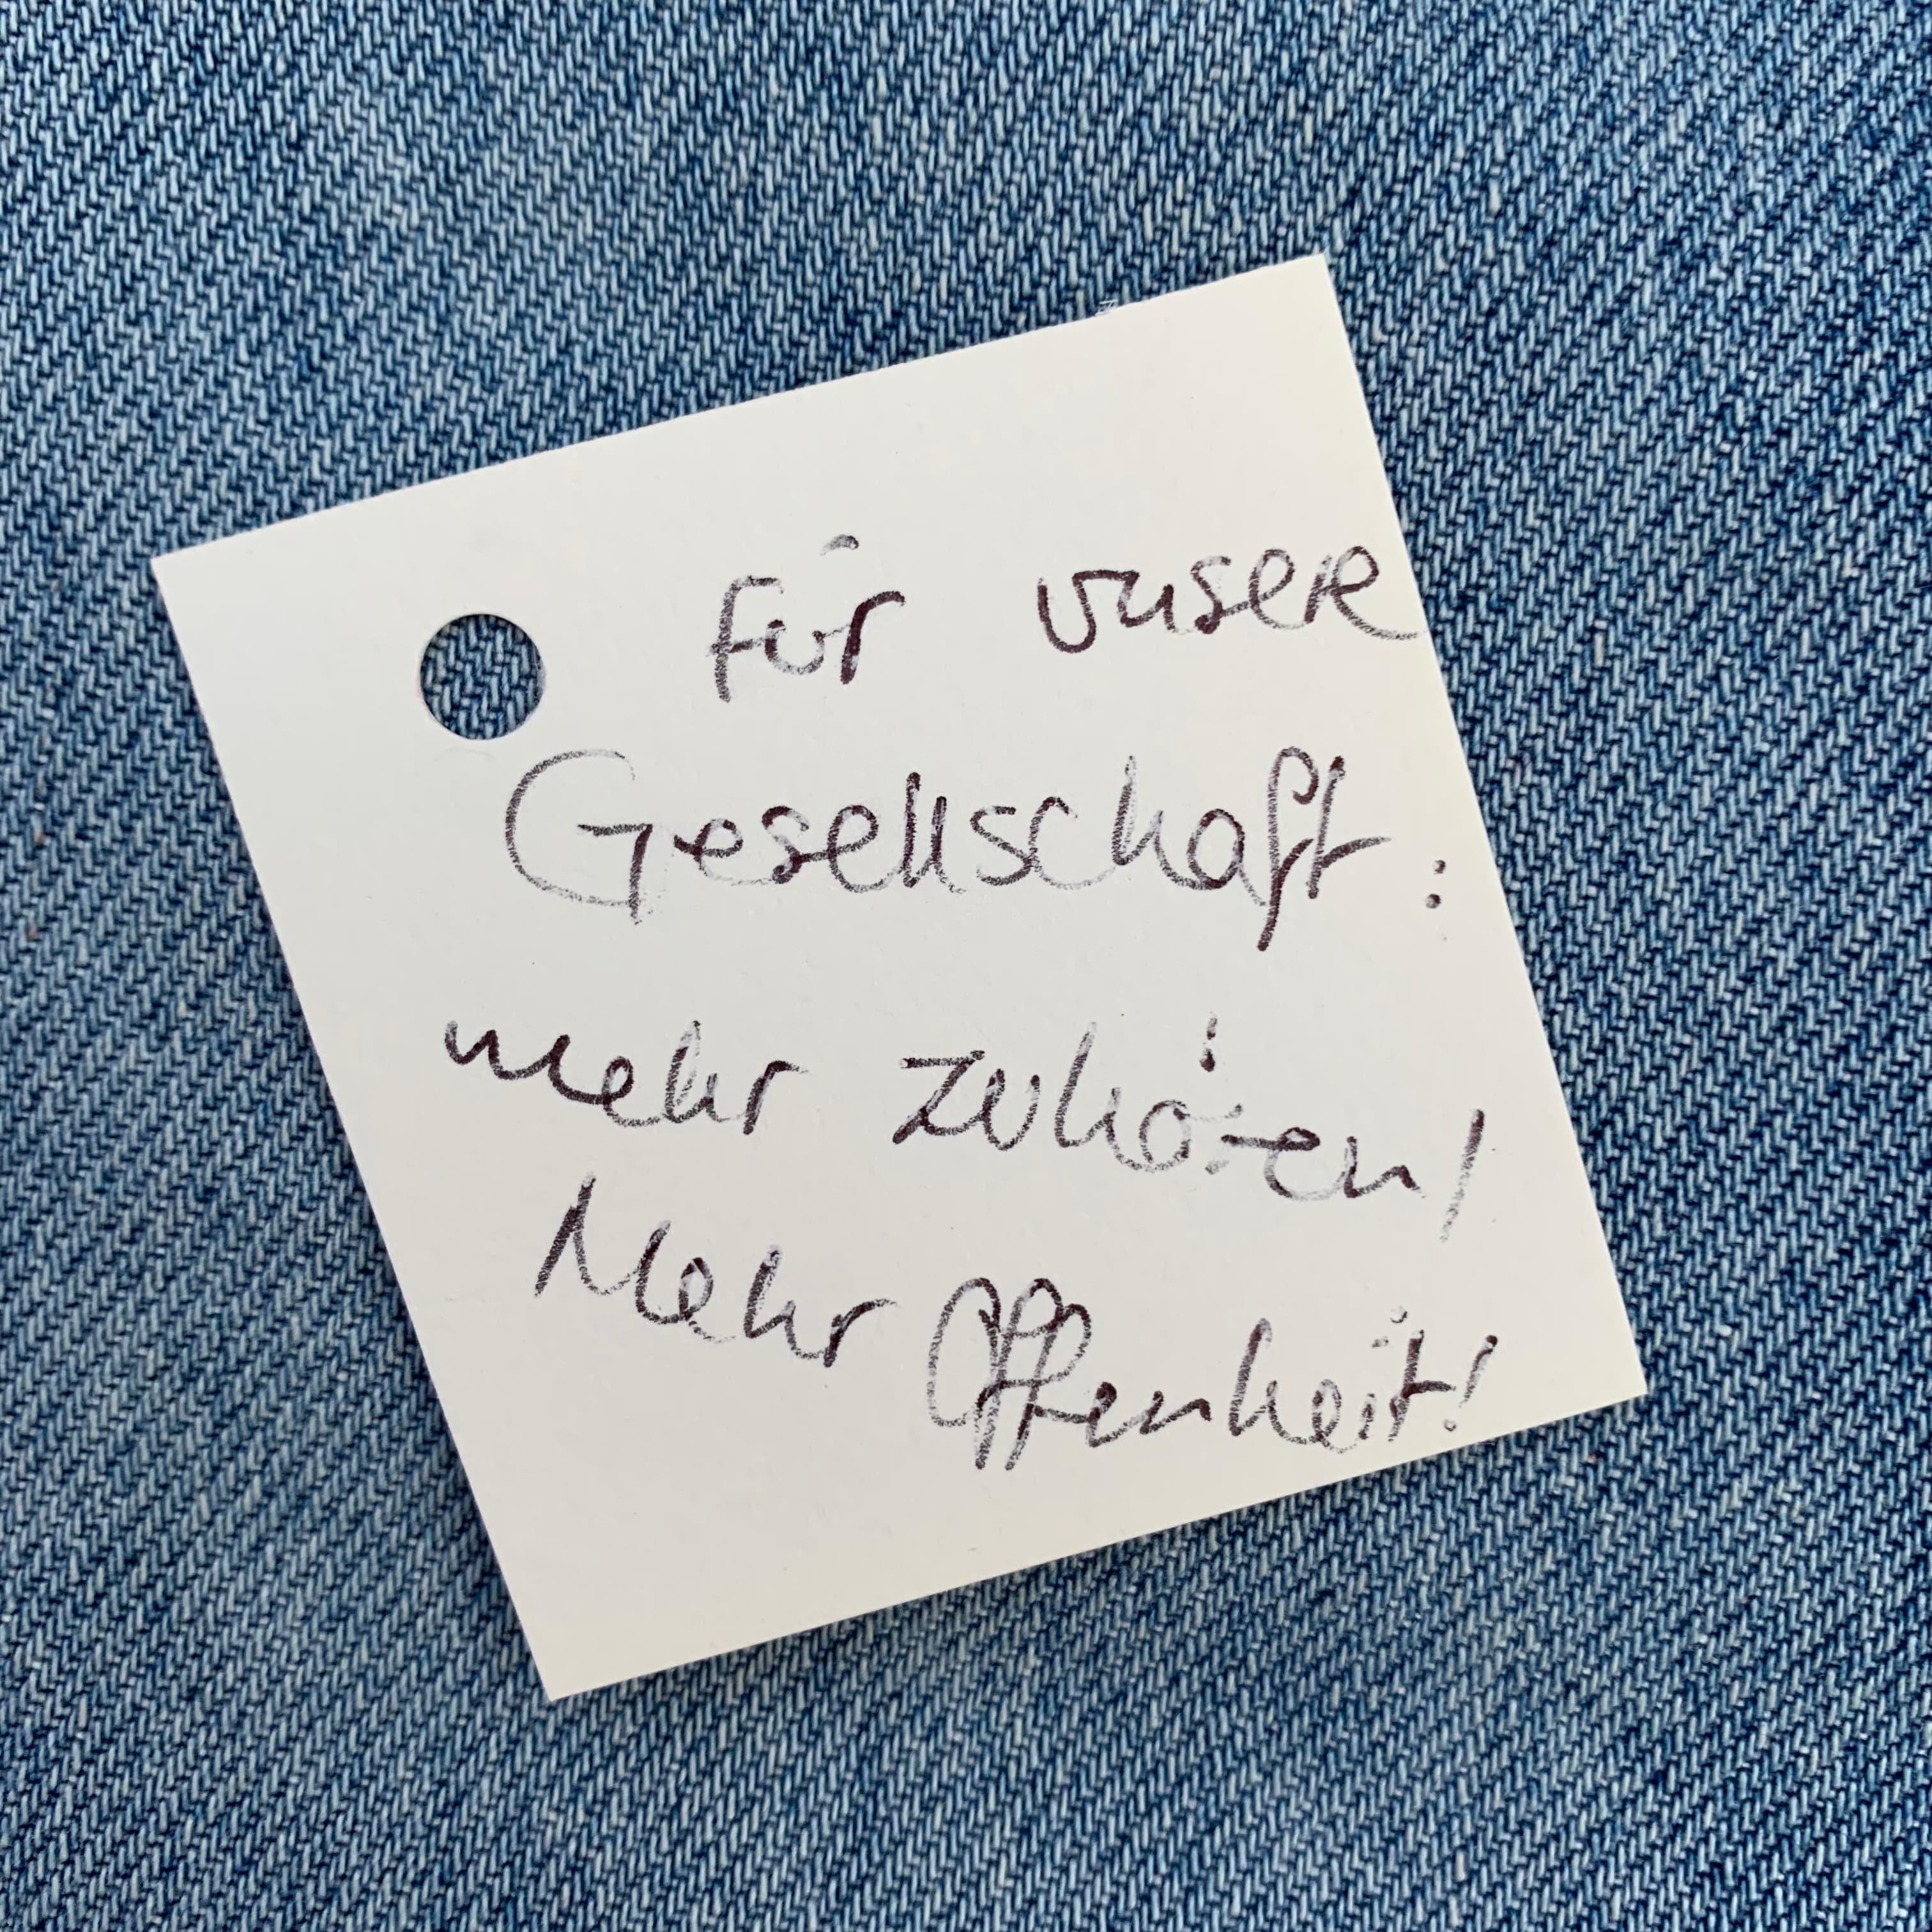 für unsere
Gesellschaft:
mehr zuhören/
Mehr Offenheit!